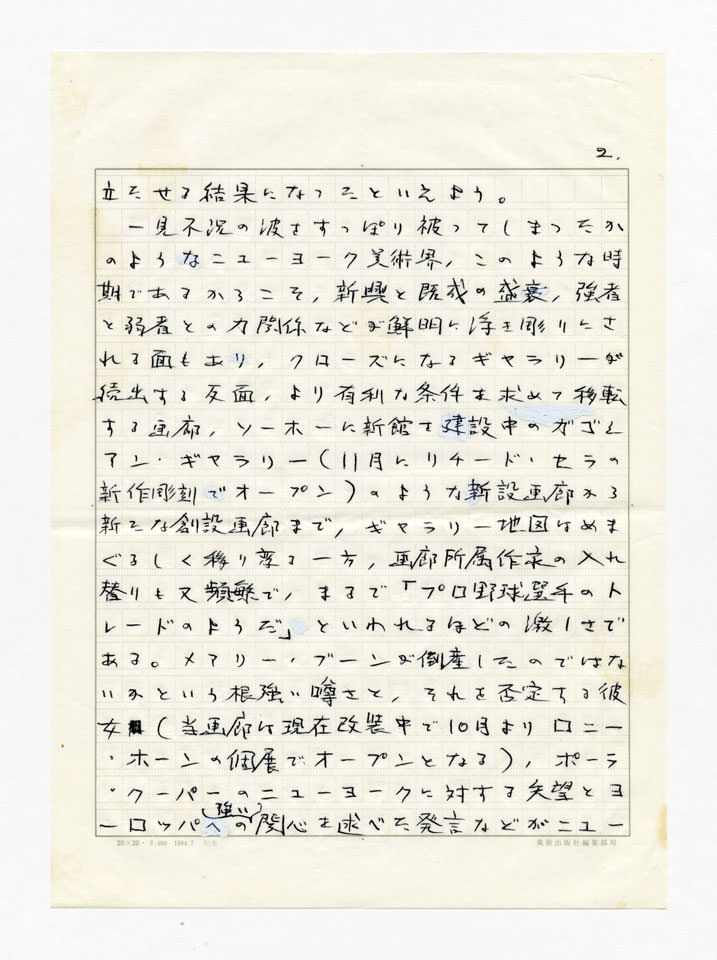 2.
立たせる結果になったといえよう。
一見不況の波をすっぽり被ってしまったか
のようなニューヨーク美術界，このような時
期であるからこそ，新興と既成の盛衰，強者
と弱者との力関係などが鮮明に浮き彫りにさ
れる面もあり，クローズになるギャラリーが
続出する反面，より有利な条件を求めて移転
する画廊，ソーホーに新館を建設中のガゴシ
アン・ギャラリー（11月にリチャード・セラの
新作彫刻でオープン）のような新設画廊から
新たな創設画廊まで，ギャラリー地図はめま
ぐるしく移り変る一方，画廊所属作家の入れ
替りも又頻繁で，まるで「プロ野球選手のト
レードのようだ」といわれるほどの激しさで
ある。メアリー・ブーンが倒産したのではな
いかという根強い噂さと，それを否定する彼
女（当画廊は現在改装中で10月よりロニー
・ホーンの個展でオープンとなる），ポーラ
・クーパーのニューヨークに対する失望とヨ
ーロッパへの強い関心を述べた発言などがニュー
20×20・
美術出版社編集部用